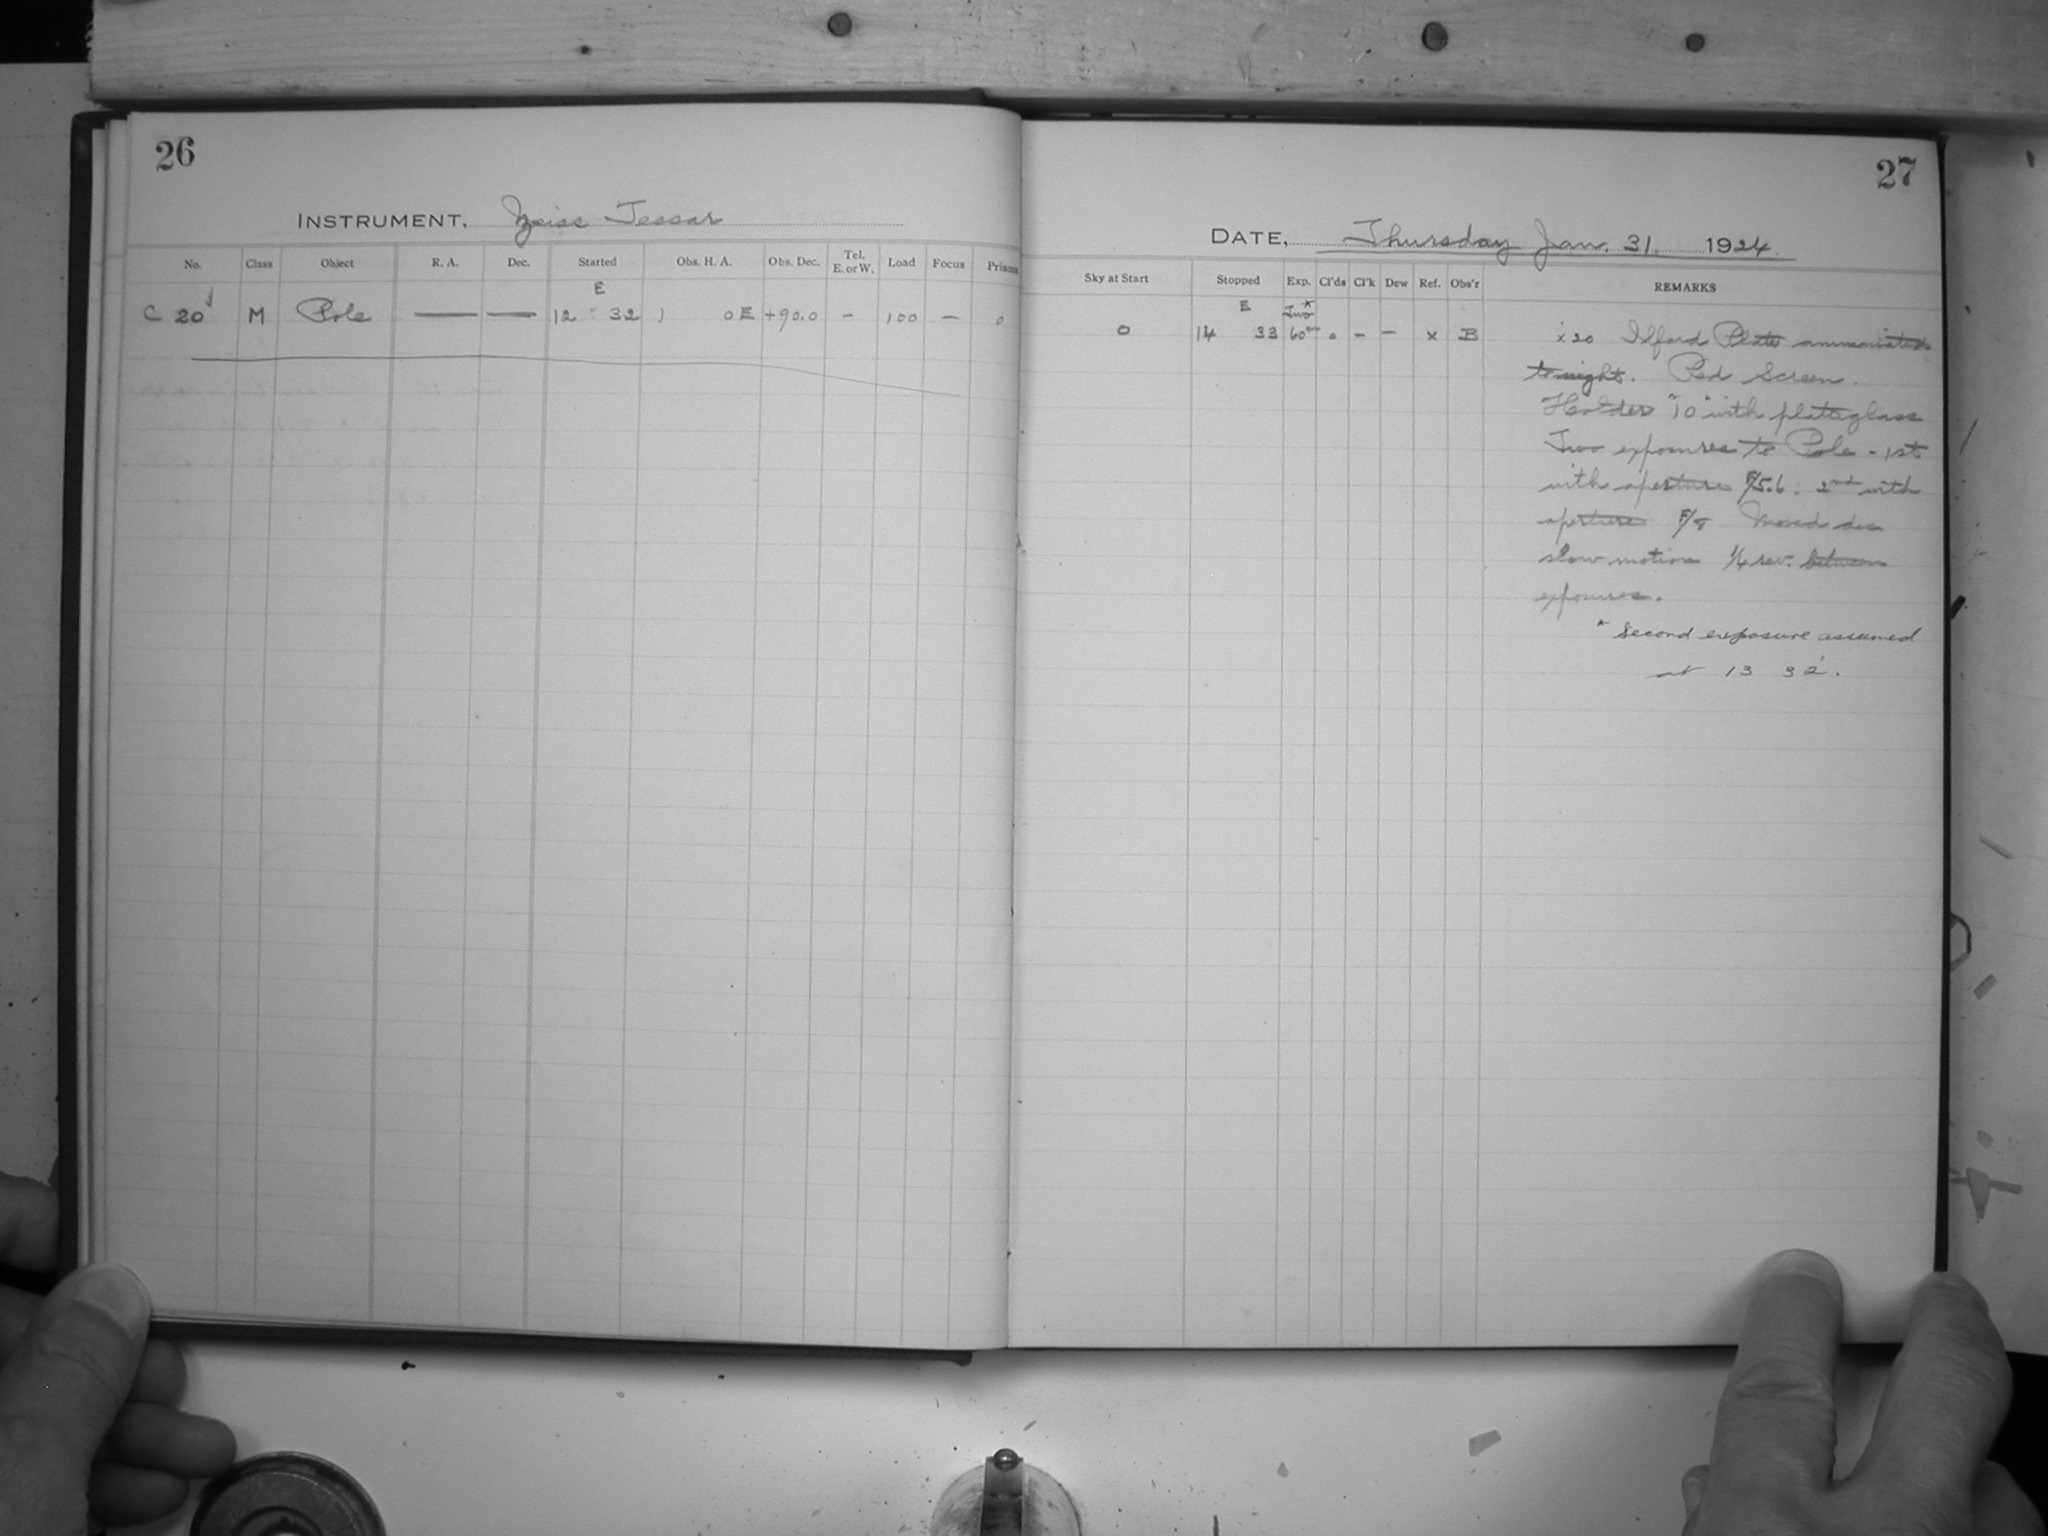 26
INSTRUMENT, Zeiss Tessar
No. Class Object R. A. Dec. Started Obs. H. A. Obs. Dec. Tel. E. or W. Load Focus Prisms
E
C 20 M Pole — — 12 32 1 0 E +90.0 – 100 – 0
27
DATE, Thursday Jan. 31. 1924
Sky at Start Stopped Exp. Cl'ds Cl'k Dew Ref. Obs'r REMARKS
E Two *
0 14 33 60 0 – – x B x20 Ilford Plate ammoniated
to-night. Red Screen.
Holder "10" with plateglass
Two exposures to Pole - 1st
with aperture F/5.6. 2nd with
aperture F/8 Moved dec
slow motion 1/4 rev. between
exposures.
* Second exposure assumed
at 13 32.